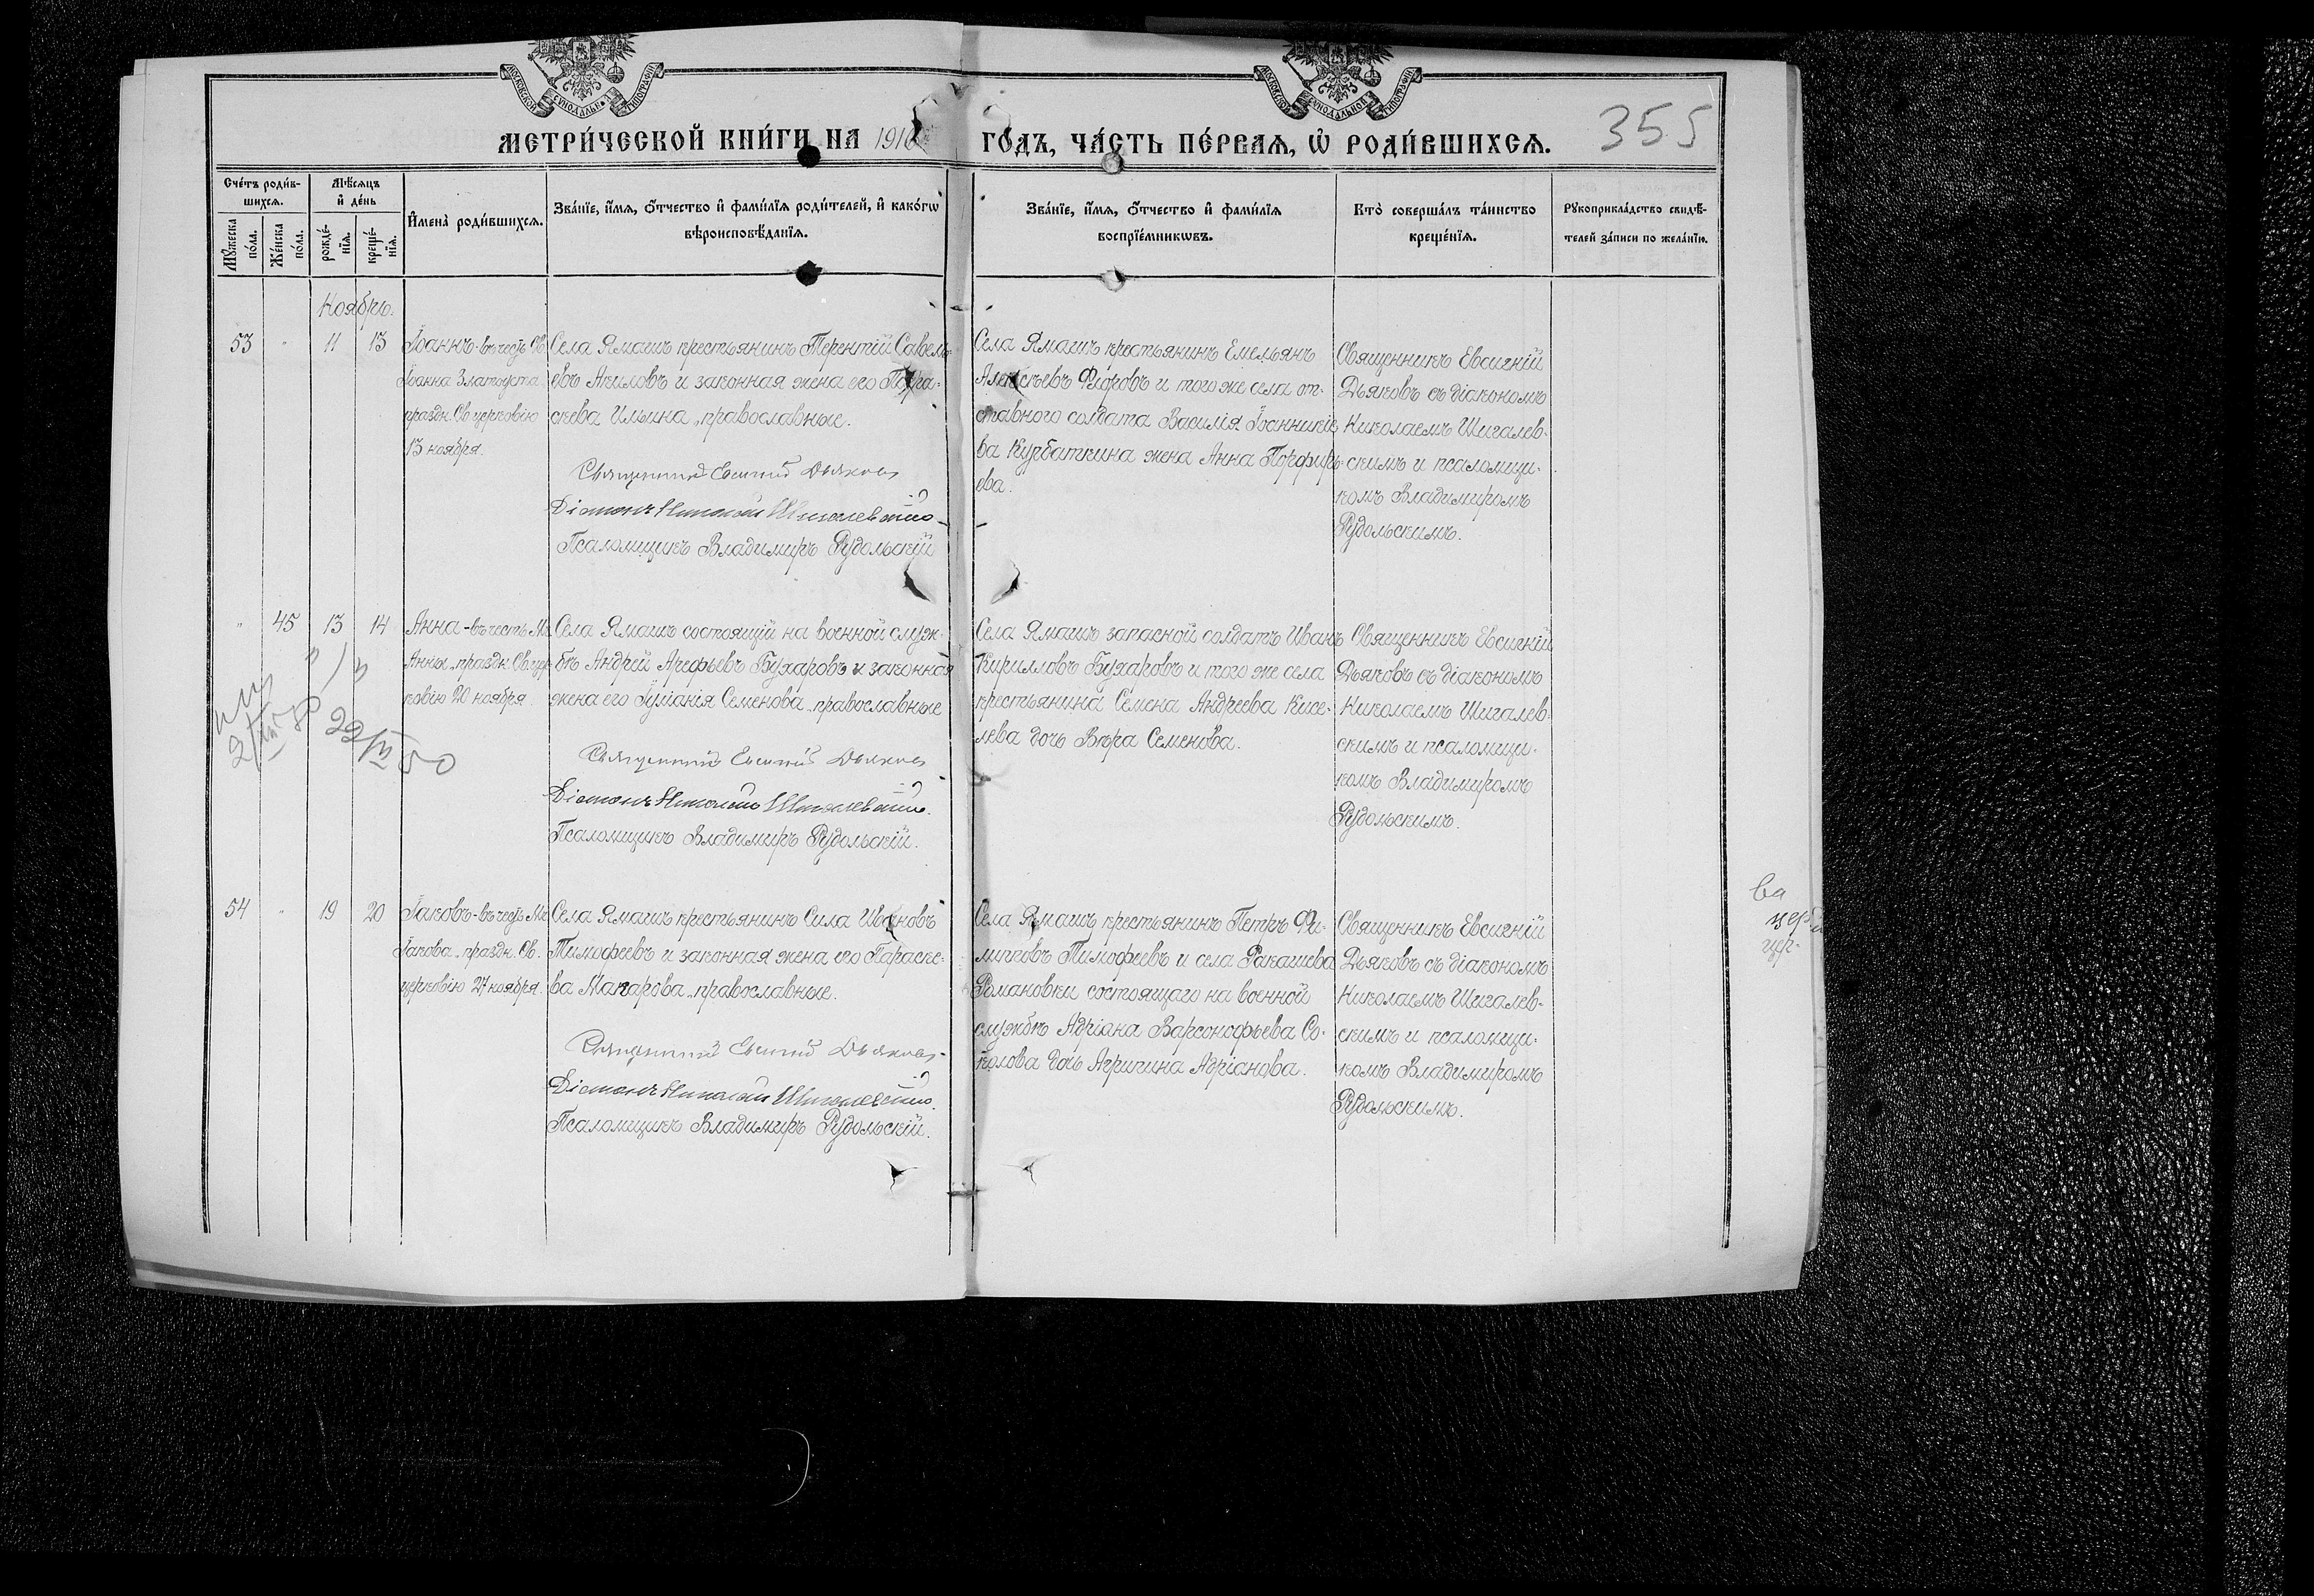 МОСКОВСКОЙ СѴНОДАЛЬНОЙ ТИПОГРАФІИ
МОСКОВСКОЙ СѴНОДАЛЬНОЙ ТИПОГРАФІИ
МЕТРИ́ЧЕСКОЙ КНИ́ГИ НА 1916
ГО́ДЪ, ЧА́СТЬ ПЕ́РВАѦ, Ѡ҆ РОДИ́ВШИХСѦ.
355
Сче́тъ роди́в-
шихсѧ.
Мꙋ́жеска
по́ла.
Же́нска
по́ла.
Мѣ́сѧцъ
и҆ де́нь
рожде́-
нїѧ.
креще́-
нїѧ.
И҆мена̀ роди́вшихсѧ.
Зва́нїе, и҆́мѧ, ѻ҆́тчество и҆ фами́лїѧ роди́телей, и҆ како́гѡ
вѣроисповѣ́данїѧ.
Зва́нїе, и҆́мѧ, ѻ҆́тчество и҆ фами́лїѧ
воспрїе́мникѡвъ.
Кто̀ соверша́лъ та́инство
креще́нїѧ.
Рꙋкоприкла́дство свидѣ́-
телей за́писи по жела́нїю.
Ноябрь.
53
"
11
13
Іоаннъ-въ честь Св.
Іоанна Златоуста
праздн. Св церковію
13 ноября.
Села Ямашъ крестьянинъ Терентій Савель-
евъ Акиловъ и законная жена его Пара-
скева Ильина, православные.
Священникъ Евсигній Дьяковъ
Діаконъ Николай Шигалевскій
Псаломщикъ Владимиръ Рудольскій
Села Ямашъ крестьянинъ Емельянъ
Алексѣевъ Флоровъ и того же села от-
ставного солдата Василія Іоанникіе
ва Курбаткина жена Анна Порфирь-
ева.
Священникъ Евсигній
Дьяковъ съ діакономъ
Николаемъ Шигалев-
скимъ и псаломщи-
комъ Владимиромъ
Рудольскимъ.
"
45
13
14
Анна-въ честь Мц.
Анны, праздн. Св. цер
ковію 20 ноября.
Села Ямашъ состоящій на военной служ-
бѣ Андрей Арефьевъ Бухаровъ и законная
жена его Гуманія Семенова, православные
Священникъ Евсигній Дьяковъ
Діаконъ Николай Шигалевскій.
Псаломщикъ Владимиръ Рудольскій.
Села Ямашъ запасной солдатъ Иванъ
Кирилловъ Бухаровъ и того же села
крестьянина Семена Андреева Кисе-
лева дочь Вѣра Семенова.
Священникъ Евсигній
Дьяковъ съ діакономъ
Николаемъ Шигалев-
скимъ и псаломщи-
комъ Владимиромъ
Рудольскимъ.
22/IV 50
54
"
19
20
Іаковъ-въ честь Мч
Іакова, праздн. Св.
церковію 27 ноября.
Села Ямашъ крестьянинъ Сила Ивановъ
Тимофеевъ и законная жена его Параске-
ва Макарова, православные.
Священникъ Евсигній Дьяковъ.
Діаконъ Николай Шигалевскій.
Псаломщикъ Владимиръ Рудольскій.
Села Ямашъ крестьянинъ Петръ Фи-
липповъ Тимофеевъ и села Ракашева
Романовки состоящаго на военной
службѣ Адріана Варсонофьева Со-
колова дочь Агрипина Адріанова.
Священникъ Евсигній
Дьяковъ съ діакономъ
Николаемъ Шигалев-
скимъ и псаломщи-
комъ Владимиромъ
Рудольскимъ.
ва